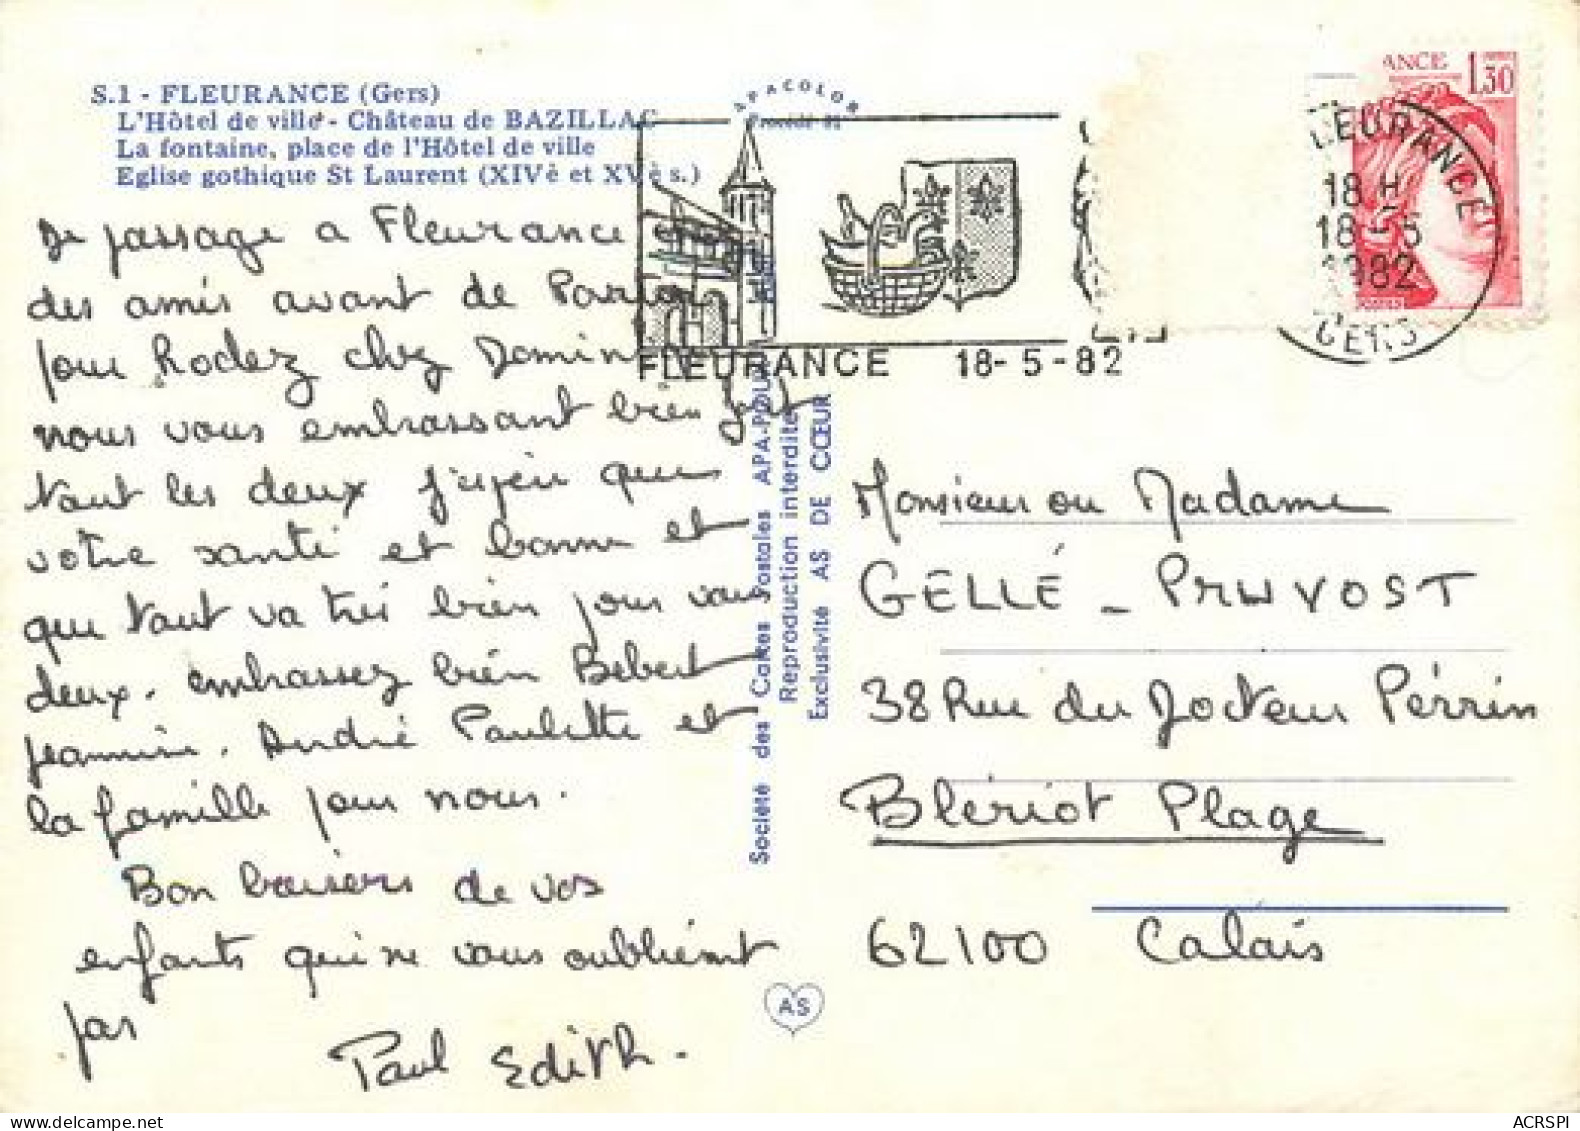 S.1 - FLEURANCE (Gers)
L'Hôtel de ville - Château de BAZILLAC
La fontaine, place de l'Hôtel de ville
Eglise gothique St Laurent (XIVè et XVè s.)
APACOLOR
Procédé
ANCE 1,30
LEURANCE
18 H
18-5
1982
GERS
FLEURANCE 18-5-82
De passage a Fleurance chez
des amis avant de
pour Rodez chez
nous vous embrassant bien fort
tout les deux j'espeir que
votre santé et bonne et
que tout va tres bien pour vous
deux. embrassez bien Bebert
Jeannine. André Paulette et
la famille pour nous.
Bon baisers de vos
enfants qui ne vous oublient
pas
Paul Edith.
Société des Cartes Postales APA-POUX
Reproduction interdite
Exclusivité AS DE CŒUR
AS
Monsieur ou Madame
GELLÉ - PRUVOST
38 Rue du Docteur Pérrin
Blériot Plage
62100 Calais
ACRSPI